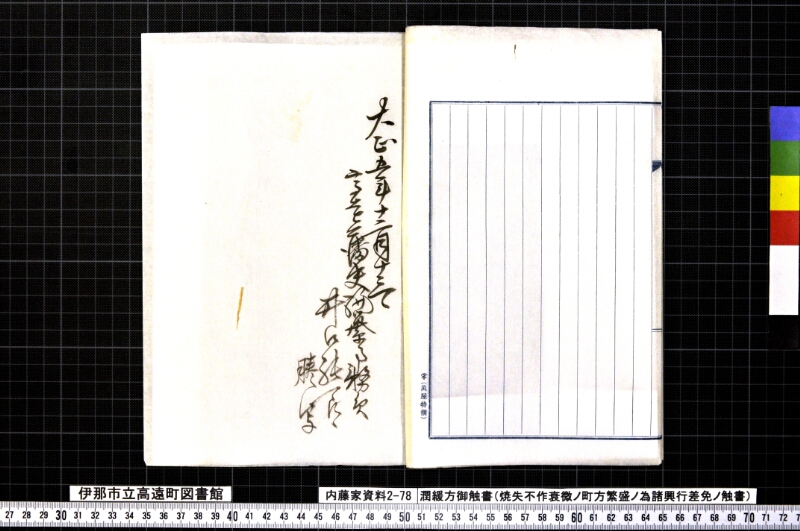 大正五年十二月十三日
高遠藩史編纂事務所
井口
謄写
伊那市立高遠町図書館
内藤家資料2-78
潤緩方御触書(焼失不作衰微ノ町方繁盛ノ為諸興行差免ノ触書)
27 28 29 30 31 32 33 34 35 36 37 38 39 40 41 42 43 44 45 46 47 48 49 50 51 52 53 54 55 56 57 58 59 60 61 62 63 64 65 66 67 68 69 70 71 72